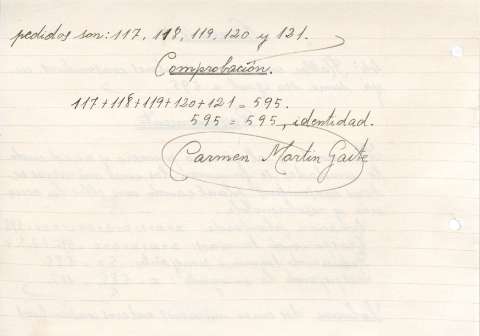 pedidos son: 117, 118, 119, 120 y 121.
Comprobación.
117+118+119+120+121 = 595.
595 = 595, identidad.
Carmen Martin Gaite